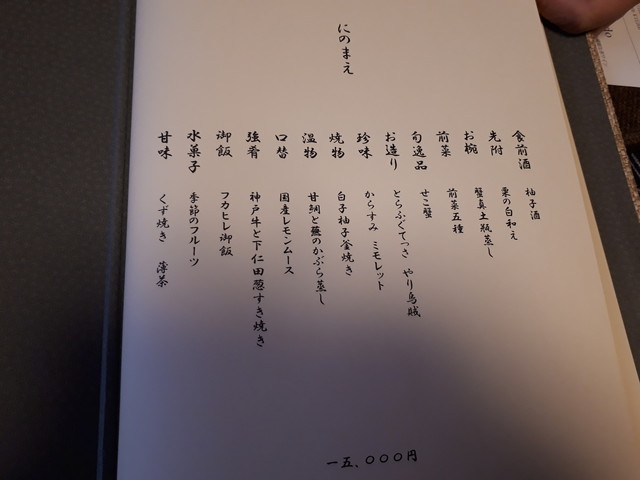 にのまえ
食前酒 柚子酒
先附 栗の白和え
お椀 蟹真土瓶蒸し
前菜 前菜五種
旬逸品 せこ蟹
お造り とらふぐてっさ やり烏賊
珍味 からすみ ミモレット
焼物 白子柚子釜焼き
温物 甘鯛と蕪のかぶら蒸し
口替 国産レモンムース
強肴 神戸牛と下仁田葱すき焼き
御飯 フカヒレ御飯
水菓子 季節のフルーツ
甘味 くず焼き 薄茶
一五、〇〇〇円